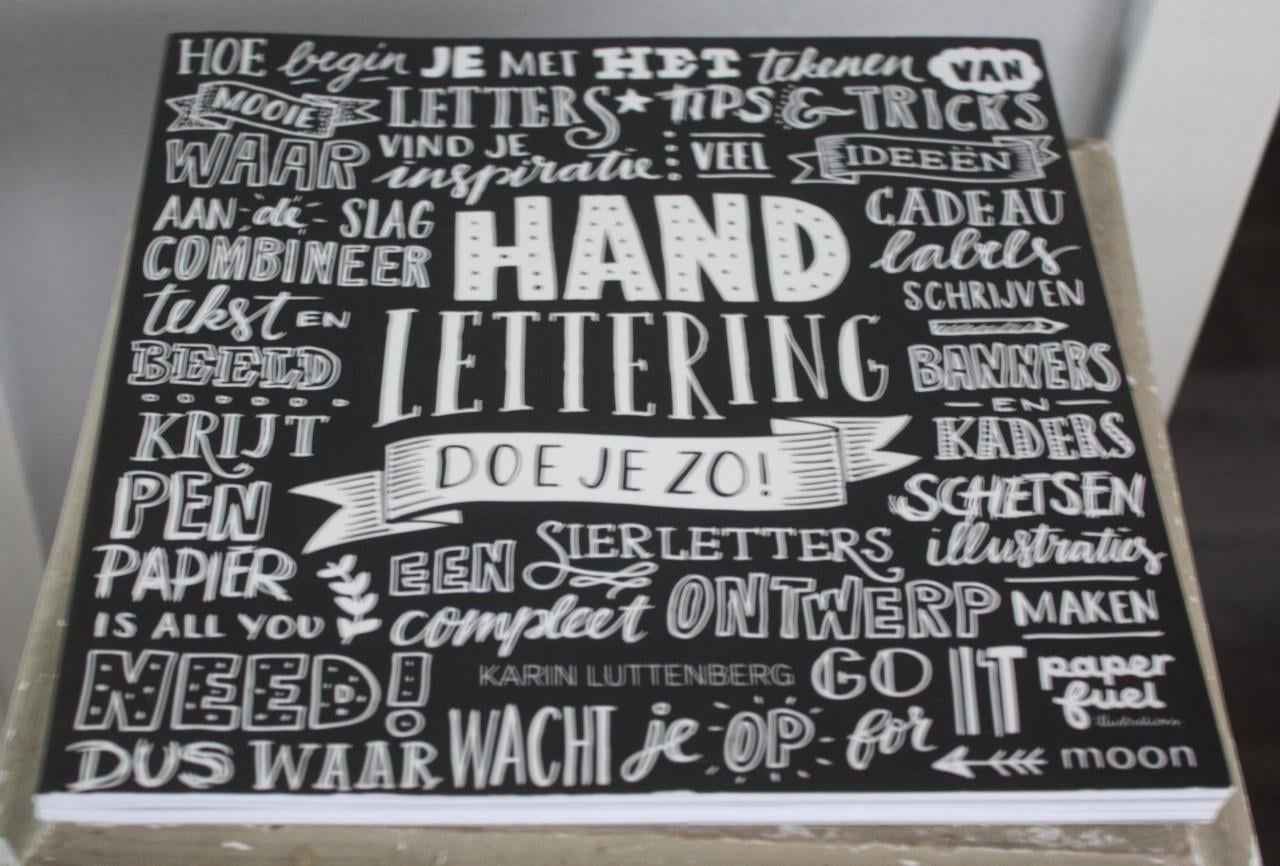 HOE begin JE MET HET tekenen VAN
MOOIE LETTERS TIPS & TRICKS
WAAR VIND JE inspiratie VEEL IDEEËN
AAN de SLAG
COMBINEER
tekst EN
BEELD
KRIJT
PEN
PAPIER
IS ALL YOU
NEED!
HAND
LETTERING
DOE JE ZO!
CADEAU
labels
SCHRIJVEN
BANNERS
EN
KADERS
SCHETSEN
illustraties
MAKEN
EEN SIERLETTERS
compleet ONTWERP
KARIN LUTTENBERG GO IT paper
fuel
illustrations
DUS WAAR WACHT je OP for
moon